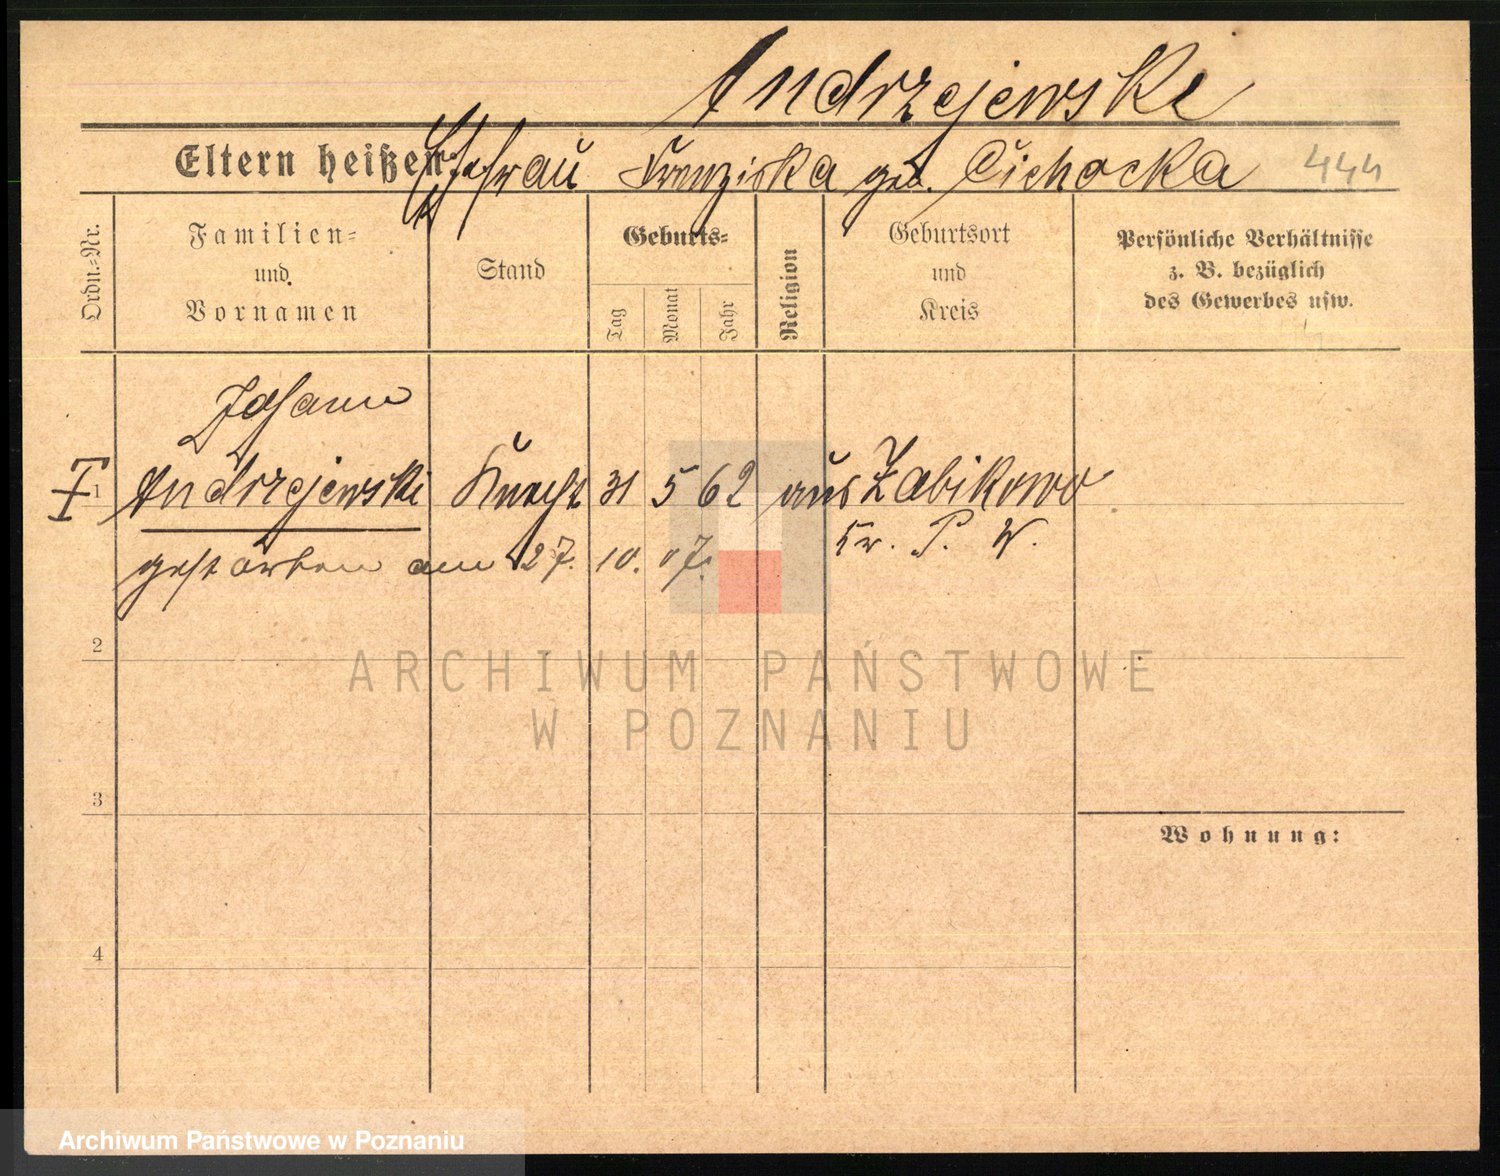 Andrzejewski
Eltern heißen: Ehefrau Franziska geb. Cichocka 444
Ordn.-Nr.
Familien-
und
Vornamen
Stand
Geburts-
Tag
Monat
Jahr
Religion
Geburtsort
und
Kreis
Persönliche Verhältnisse
z. B. bezüglich
des Gewerbes usw.
Johann
1 Andrzejewski Knecht 31 5 62 aus Zabikowo
Kr. P. W.
gestorben am 27. 10. 07.
2
3
4
Wohnung:
ARCHIWUM PAŃSTWOWE
W POZNANIU
Archiwum Państwowe w Poznaniu